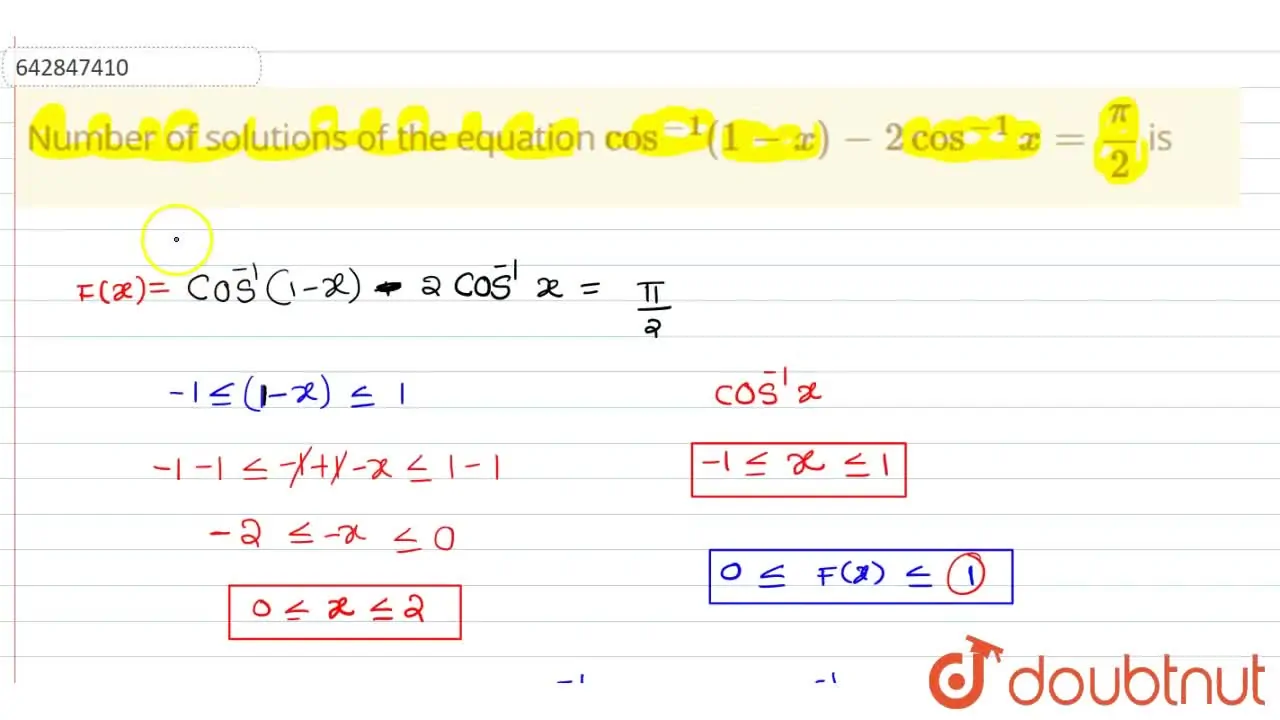 642847410
Number of solutions of the equation cos⁻¹(1 − x) − 2 cos⁻¹ x = π/2 is
F(x) = cos⁻¹(1-x) - 2 cos⁻¹ x = π/2
-1 ≤ (1-x) ≤ 1
cos⁻¹ x
-1-1 ≤ -1+1-x ≤ 1-1
-1 ≤ x ≤ 1
-2 ≤ -x ≤ 0
0 ≤ F(x) ≤ 1
0 ≤ x ≤ 2
-1 -1
doubtnut